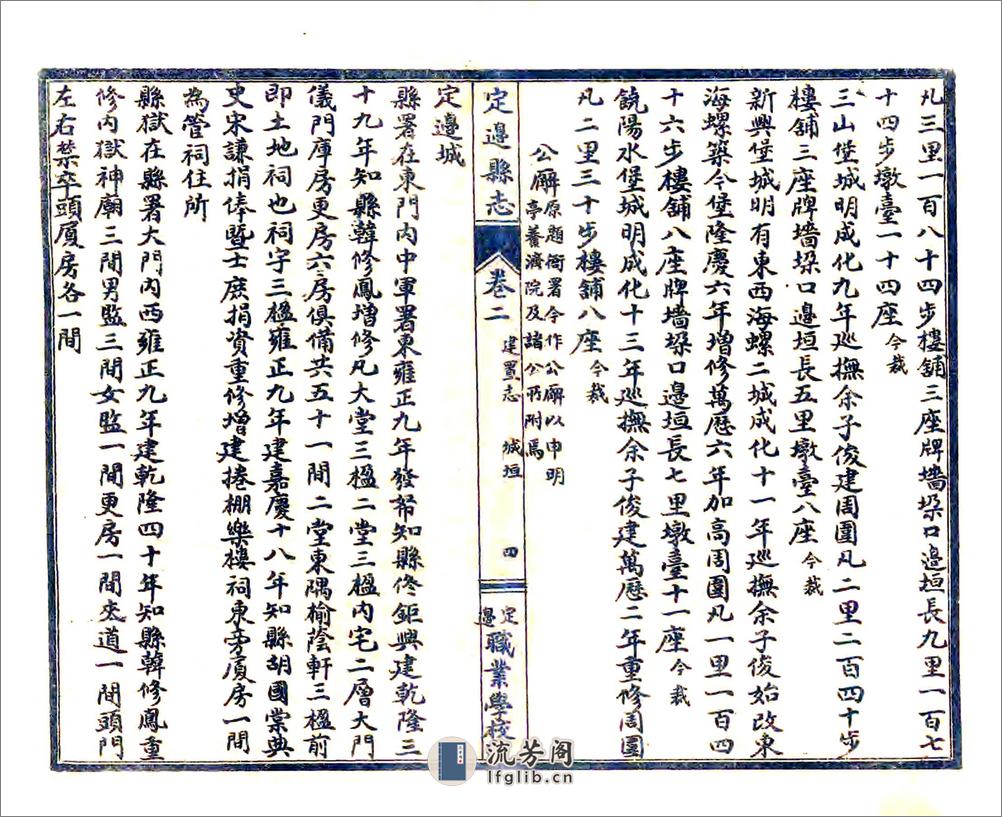 凡三里一百八十四步樓鋪三座牌墻垛口邊垣長九里一百七
十四步墩臺一十四座今裁
三山堡城明成化九年巡撫余子俊建周圍凡二里二百四十步
樓鋪三座牌墻垛口邊垣長五里墩臺八座今裁
新興堡城明有東西海螺二城成化十一年巡撫余子俊始改東
海螺築今堡隆慶六年增修萬歷六年加高周圍凡一里一百四
十六步樓鋪八座牌墻垛口邊垣長七里墩臺十一座今裁
饒陽水堡城明成化十三年巡撫余子俊建萬歷二年重修周圍
凡二里三十步樓鋪八座今裁
公廨原題衙署今作公廨以申明
亭養濟院及諸公所附焉
定邊縣志
卷二
建置志
城垣
四
定邊職業學校
定邊城
縣署在東門內中軍署東雍正九年發帑知縣佟鉅興建乾隆三
十九年知縣韓修鳳增修凡大堂三楹二堂三楹內宅二層大門
儀門庫房更房六房俱備共五十一間二堂東隅榆蔭軒三楹前
即土地祠也祠字三楹雍正九年建嘉慶十八年知縣胡國棠典
史宋謙捐俸暨士庶捐資重修增建捲棚樂樓祠東旁厦房一間
為管祠住所
縣獄在縣署大門內西雍正九年建乾隆四十年知縣韓修鳳重
修內獄神廟三間男監三間女監一間更房一間夾道一間頭門
左右禁卒頭厦房各一間
流芳阁
lfglib.cn